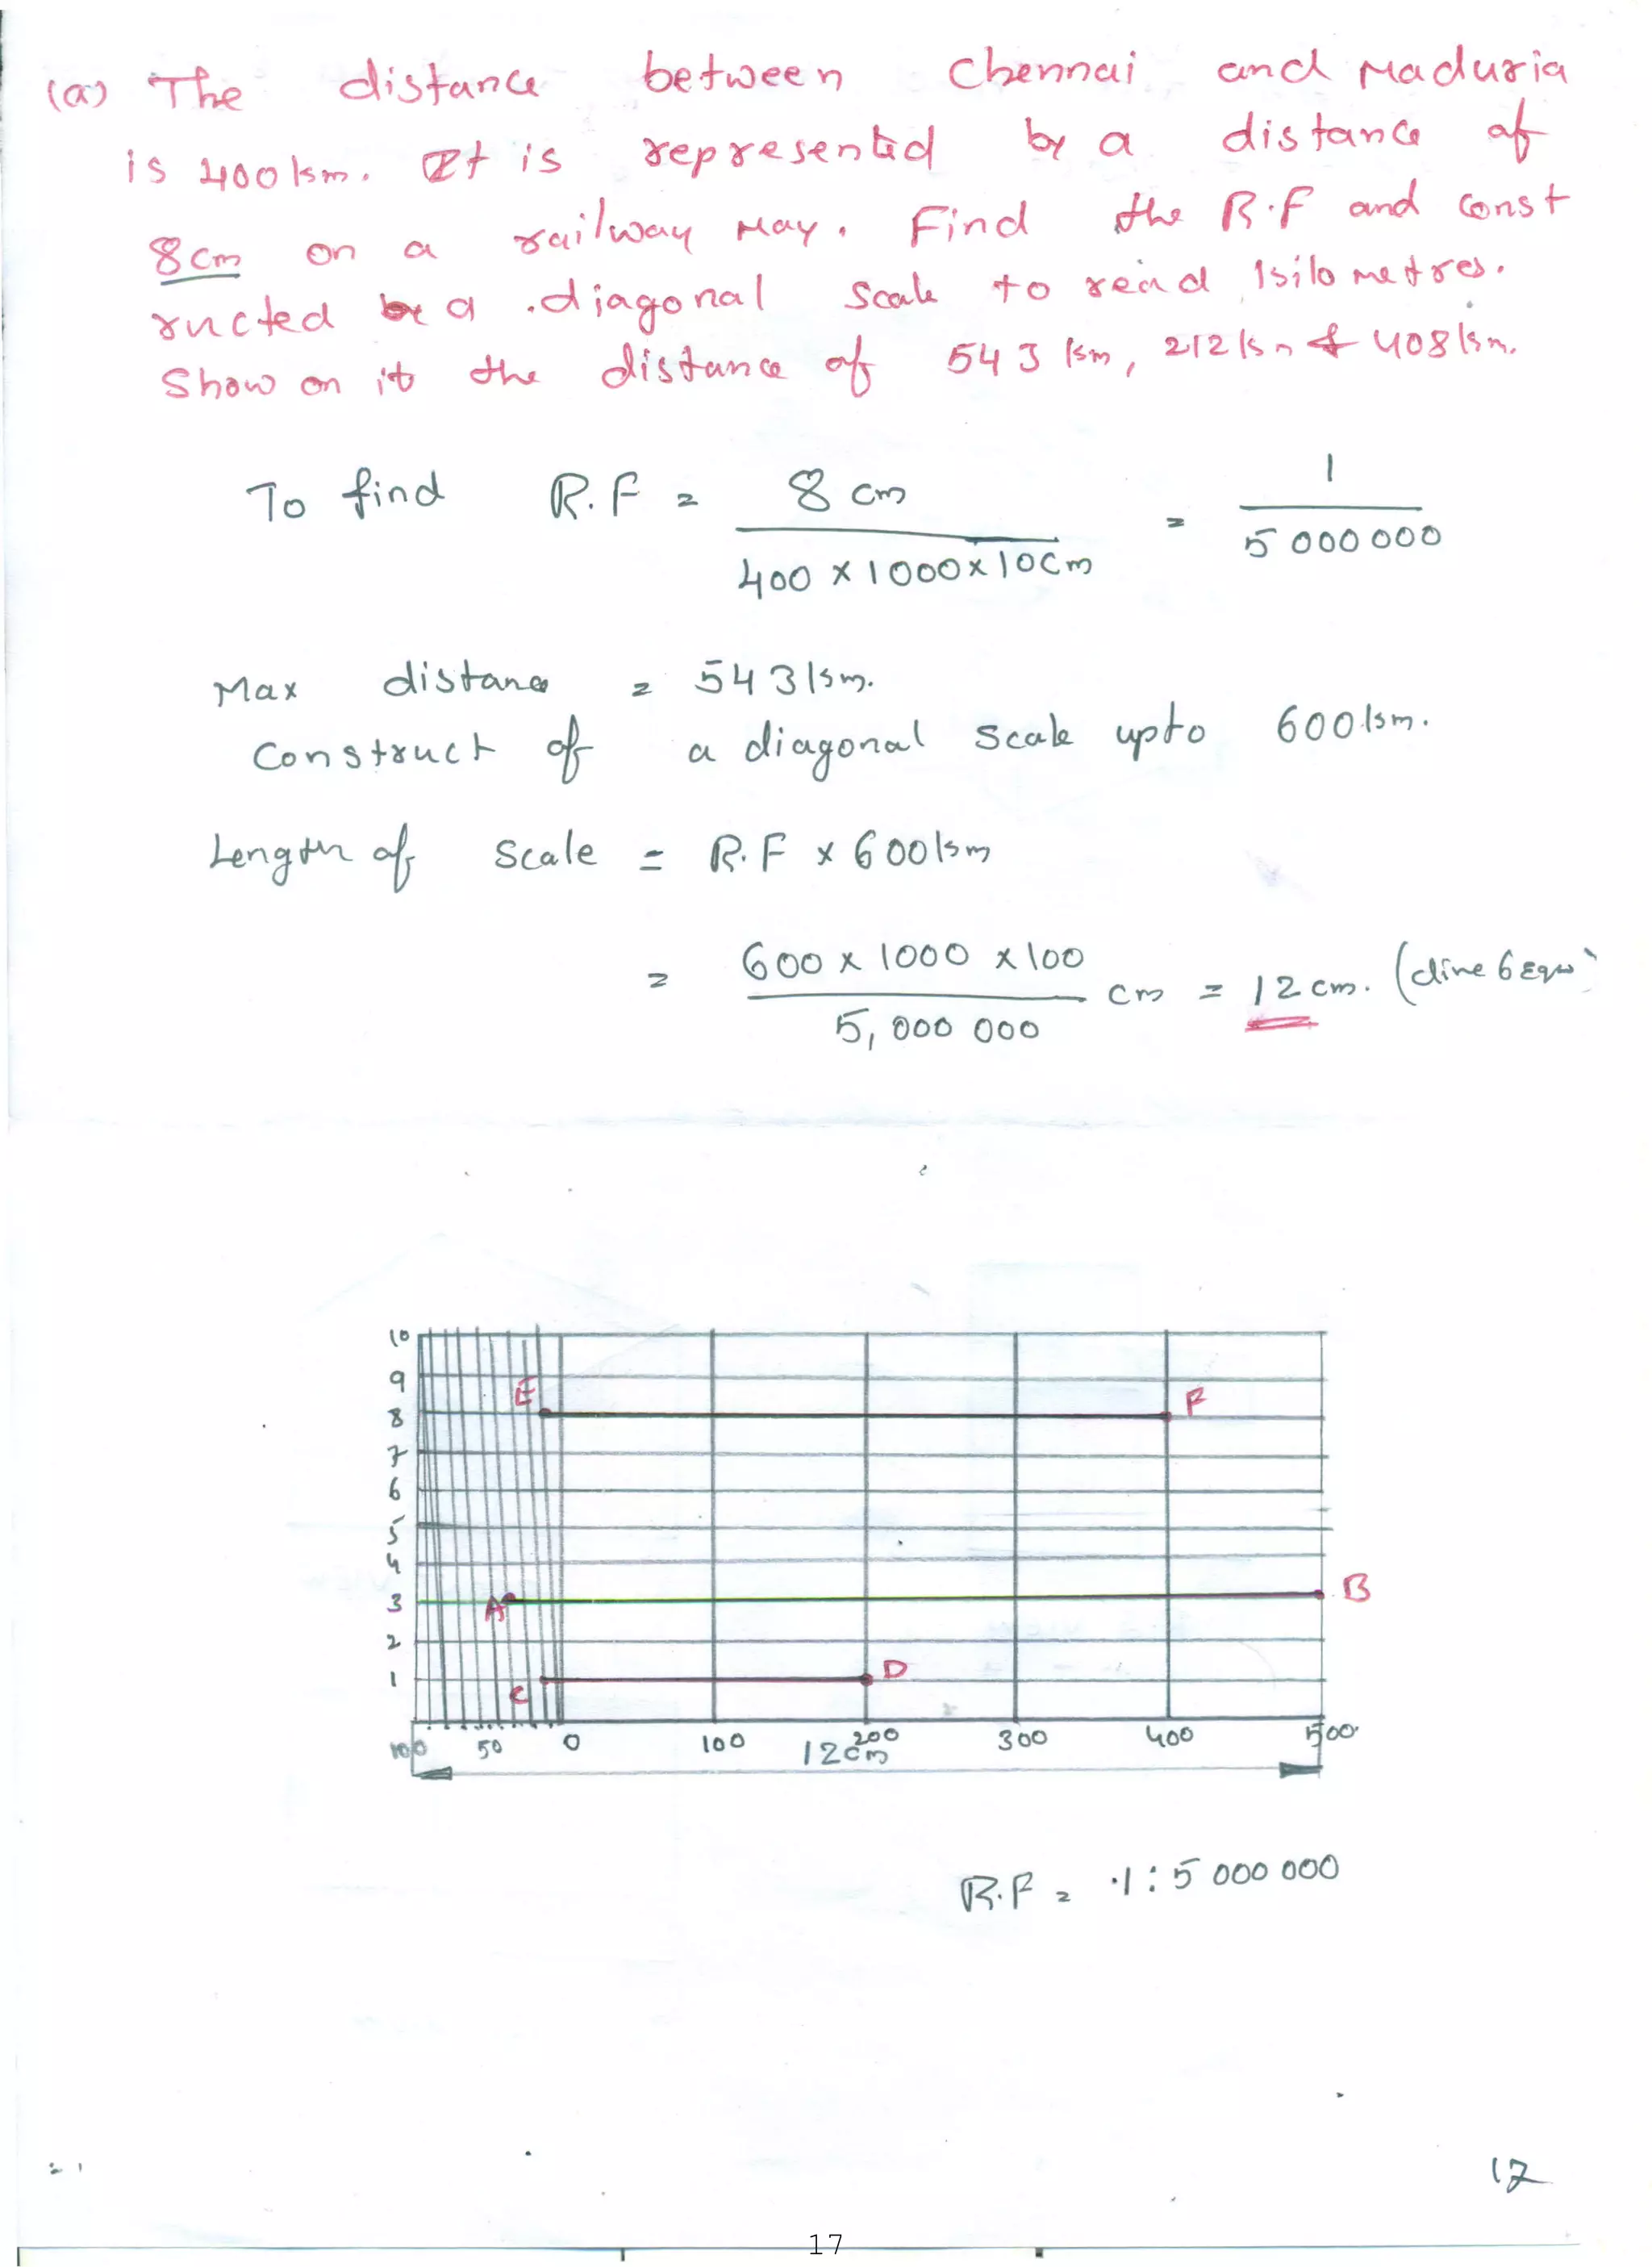 (a) The distance between Chennai and Maduria
is 400 km. It is represented by a distance of
8 cm on a railway May. Find the R.F and const
ructed a diagonal scale to read kilometres.
Show on it the distance of 543 km, 212 km & 408 km.
To find R.F = 8 cm / 400 x 1000 x 10 cm = 1 / 5 000 000
Max distance = 543 km.
Construct of a diagonal scale upto 600 km.
Length of scale = R.F x 600 km
= 600 x 1000 x 100 / 5, 000 000 cm = 12 cm. (dive 6 Equ)
10
9
E F
8
7
6
5
4
3 A B
2
1 D
C
100 50 0 100 200 300 400 500
12 cm
R.F = 1 : 5 000 000
17
17